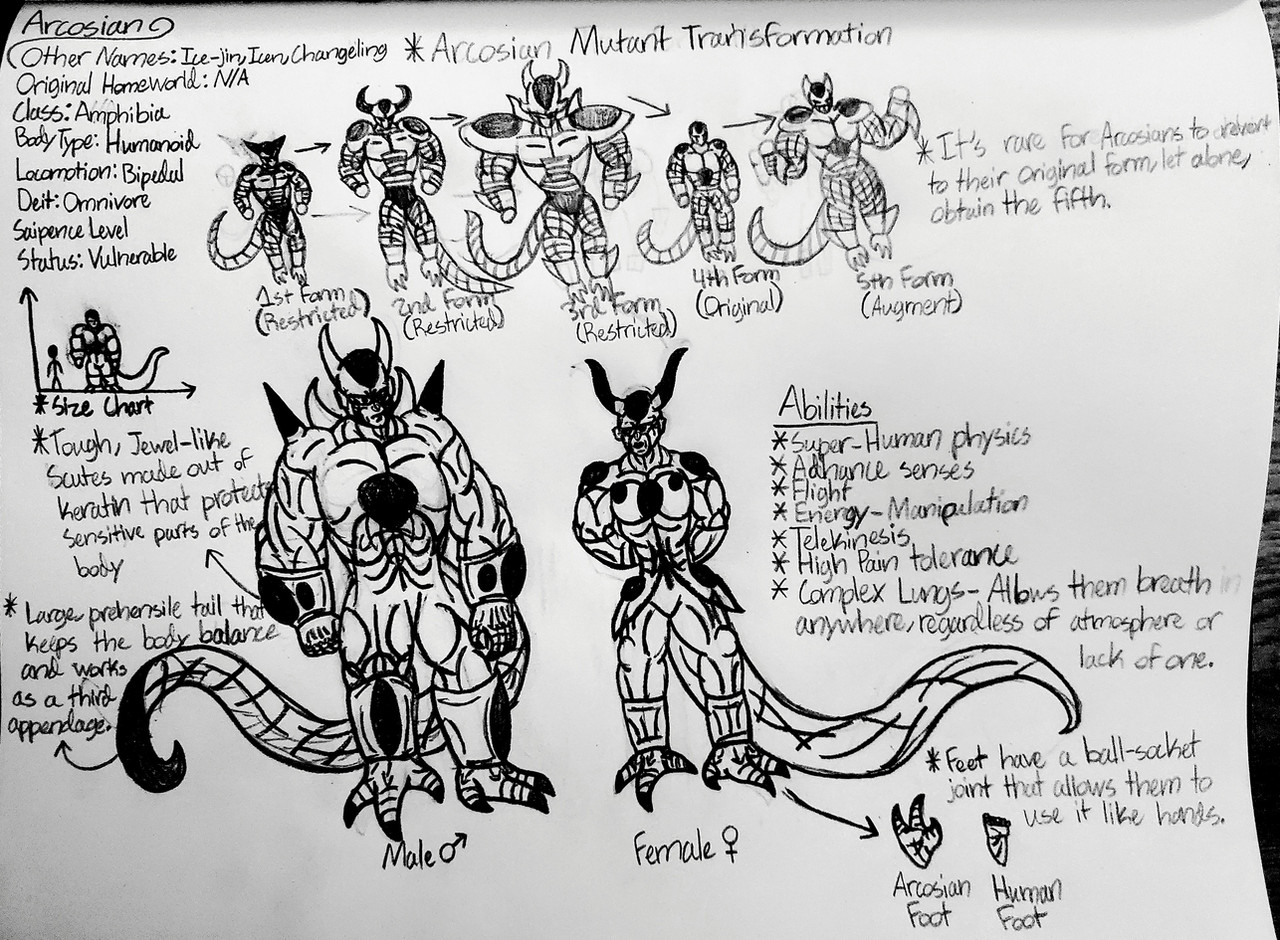 Arcosian
Other Names: Ice-jin, Icen, Changeling
* Arcosian Mutant Transformation
Original Homeworld: N/A
Class: Amphibia
Body Type: Humanoid
Locomotion: Bipedal
Deit: Omnivore
Saipence Level
Status: Vulnerable
1st Form
(Restricted)
2nd Form
(Restricted)
3rd Form
(Restricted)
4th Form
(Original)
5th Form
(Augment)
* It's rare for Arcosians to
to their original form, let alone,
obtain the fifth.
* Size Chart
* Tough, Jewel-like
Scutes made out of
keratin that protects
sensitive parts of the
body
* Large, prehensile tail that
keeps the body balance
and works
as a third
appendage.
Male ♂
Female ♀
Abilities
* Super-Human physics
* Adhance senses
* Flight
* Energy-Manipulation
* Telekinesis
* High Pain tolerance
* Complex Lungs- Allows them breath in
anywhere, regardless of atmosphere or
lack of one.
* Feet have a ball-socket
joint that allows them to
use it like hands.
Arcosian
Foot
Human
Foot